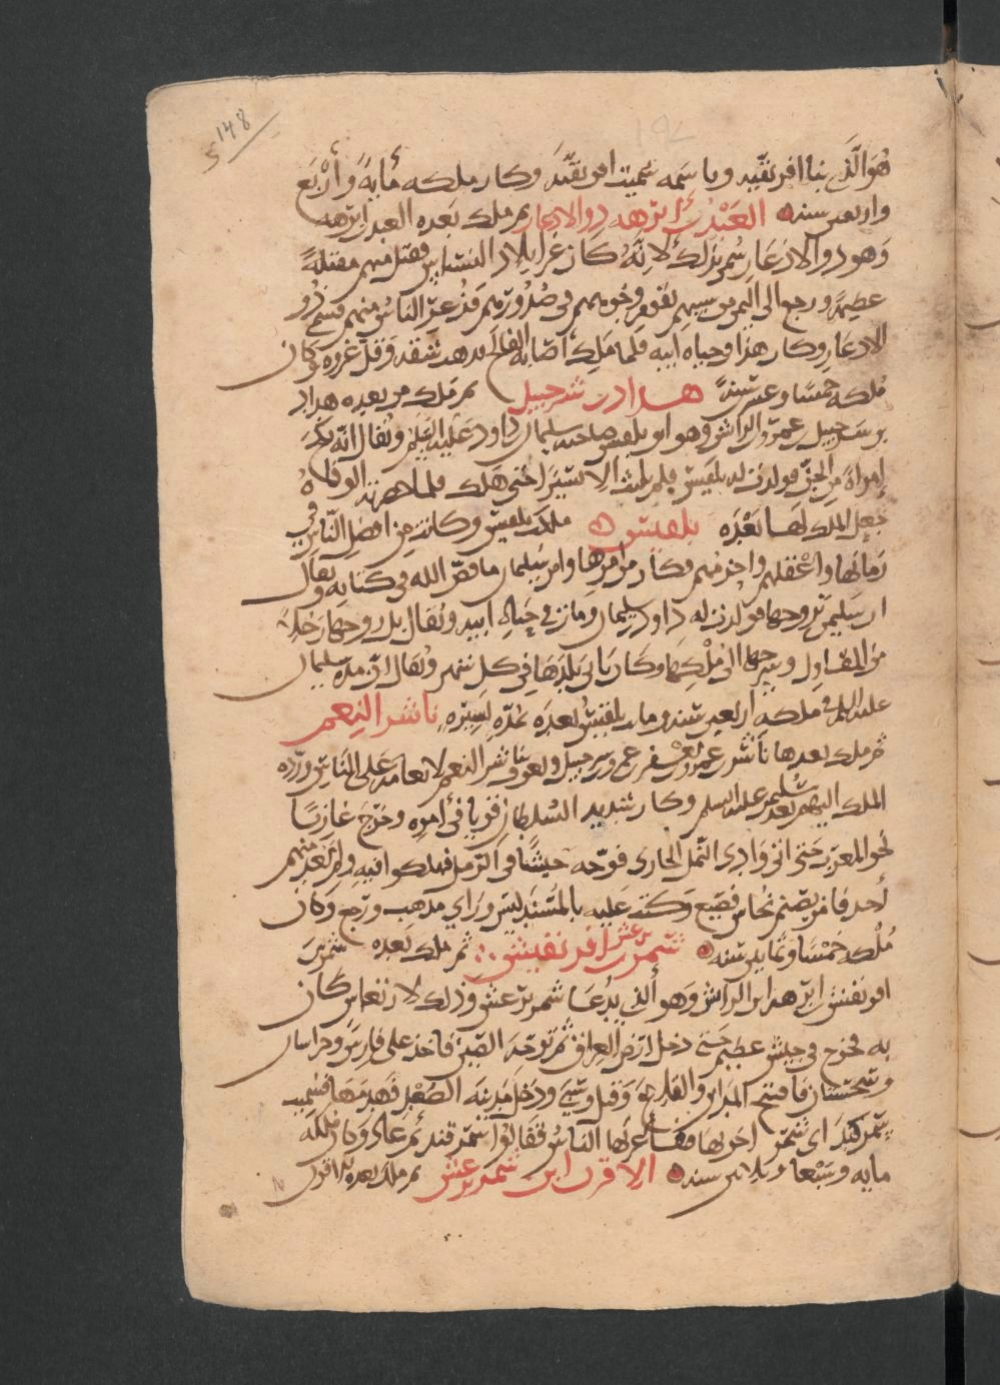 148
192
هُوَ الَّذي بنا افريقيه وباسمه سميت افريقيّه وكان ملكه مُايةً وأربَع
واربعين سنه العَبْد بن ابرهه ذو الاذعار ثم ملك بَعده العبد بن ابرهه
وَهو ذو الاذعار سُمي بذلك لانّه كان غزا بلاد النسناس فقتل منهم مقتلةً
عظيمة ورجع الى اليمن من سبيهم بقوم وجوههم في صُدُورهم فذُعِر النّاسُ منهم فسمي ذُو
الاذعار وكان هذا في حياه ابيه فلما مَلك اصَابه الفالج فذهب شقه وقل غزوه وكان
مُلكه خمسًا وعشرين سنةً هداد بن شرحبيل ثم مَلك من بعده هداد
بن شرحبيل بن عمرو بن الرائش وهو ابو بلقيس صاحبه سليمان بن داود عليه السلم ويُقال انّه نكح
اِمراةً مِن الجنّ فولدت له بلقيس فلم يلبث الا يسيرًا حتى هَلك فلما حضرته الوفاهُ
جعل الملك لهَا بَعْدَه بلقيس ملكت بلقيس وكانت مِن افضل النّاس في
زمانها واعْقلهم واحزمهم وكان من امرها وامر سُليمان ما قصّ الله في كتابه ويقال
ان سليمن تزوجها فولدت له داود بن سليمان ومات في حَياه ابيه ويُقال بل زوجها رَجلاً
من المقاوِل وسرحها الى مُلكها وكان ياتي بلدَها في كل شهر ويُقال ان مده سليمان
عليه السلم في ملكه اربعين سنه وماتت بلقيس بعدَه بمدّه يسيرَه ناشر النِعم
ثم ملك بعدها نَاشر بن عمرو بن يعْفر بن عمرو بن شرحبيل ويعرف بناشر النعم لانعامه على الناس وردّه
الملك اليهم بعد سُليمن عليه السلم وكان شديد السُلطان قويا في أمره وخرَج غازيًا
نحو المغرب حتى اتى وَادي الرّمل الجاري فوجّه جيشًا في الرّمل فهلكوا فيهِ ولم يَعد منهم
أحد فامَر بصَنم نحاس فصُنع وكتب عليه بالمُسْنَد ليس وراي مذهب ورَجع وكان
مُلكه خَمْسًا وثمانين سنه شمر يرعش بن افريقيش ثم ملك بعده شمر بن
افريقيش بن ابرهه ابن الرائش وَهو الذي يُدعَا شمر يرعش وذلك لارتعاش كان
به فخرج في جيش عظيم حَتى دخل ارض العِراق ثم توجّه الصّين فاخذ على فارسَ وخراسان
وسجستان فافتتح المدائن والقلاع وقتل وسَبي ودَخل مَدينَه الصُغْد فهدمَهَا فسُميت
شمركند اي شمر اخربها فعرّبها النّاسُ فقالوا سمرقند ثم عاد وكان ملكه
مايه وسَبْعا وثلاثين سنه الاقرن ابن شمر يرعش ثم ملك بعده الاقرن